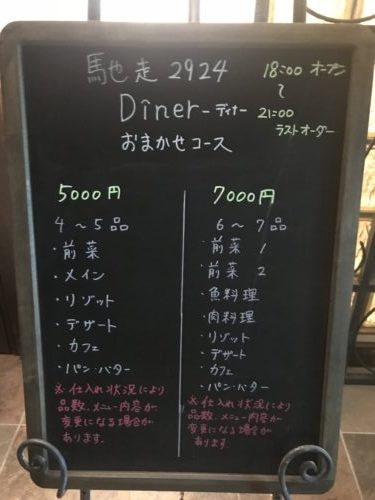 馳走 2924
18:00 オープン
〜
21:00
ラストオーダー
Dîner - ディナー
おまかせコース
5000円
4〜5品
・前菜
・メイン
・リゾット
・デザート
・カフェ
・パン・バター
※仕入れ状況により
品数、メニュー内容が
変更になる場合が
あります。
7000円
6〜7品
・前菜 1
・前菜 2
・魚料理
・肉料理
・リゾット
・デザート
・カフェ
・パン・バター
※仕入れ状況により
品数、メニュー内容が
変更になる場合が
あります。